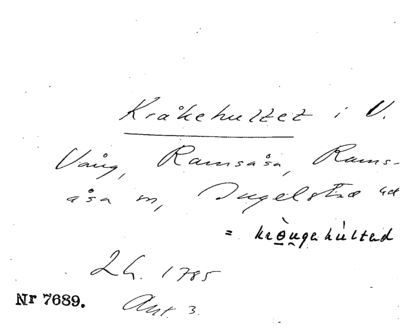 Kråkehultet i V.
Vång, Ramsåsa, Rams-
åsa sn, Ingelstad hd
= krò̱u̱gahùltad
LH. 1785
Nr 7689. Ant. 3.